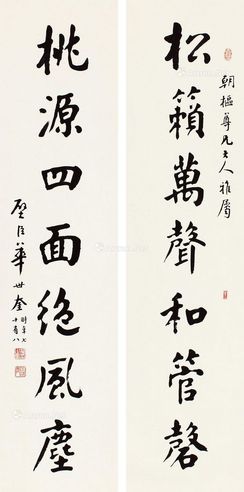 朝樞尊兄大人雅屬
松籟萬聲和管磬
桃源四面絕風塵
璧臣華世奎
時年七十有八